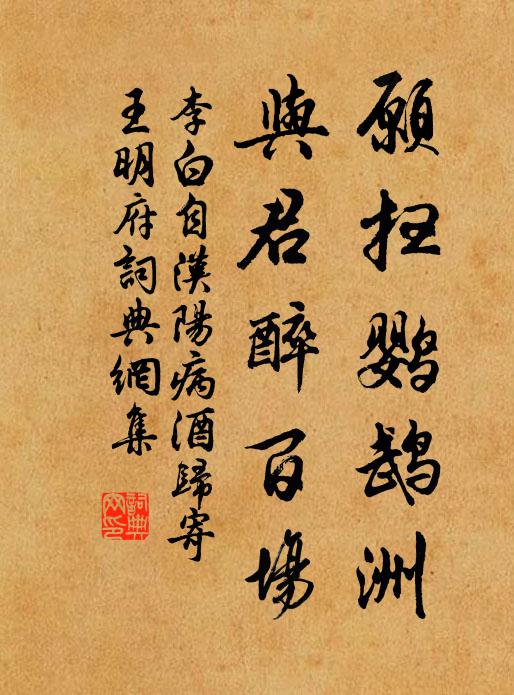 願扫鹦鹉洲
與君醉百場
李白自漢陽病酒歸寄
王明府詞典網集
詞典网印